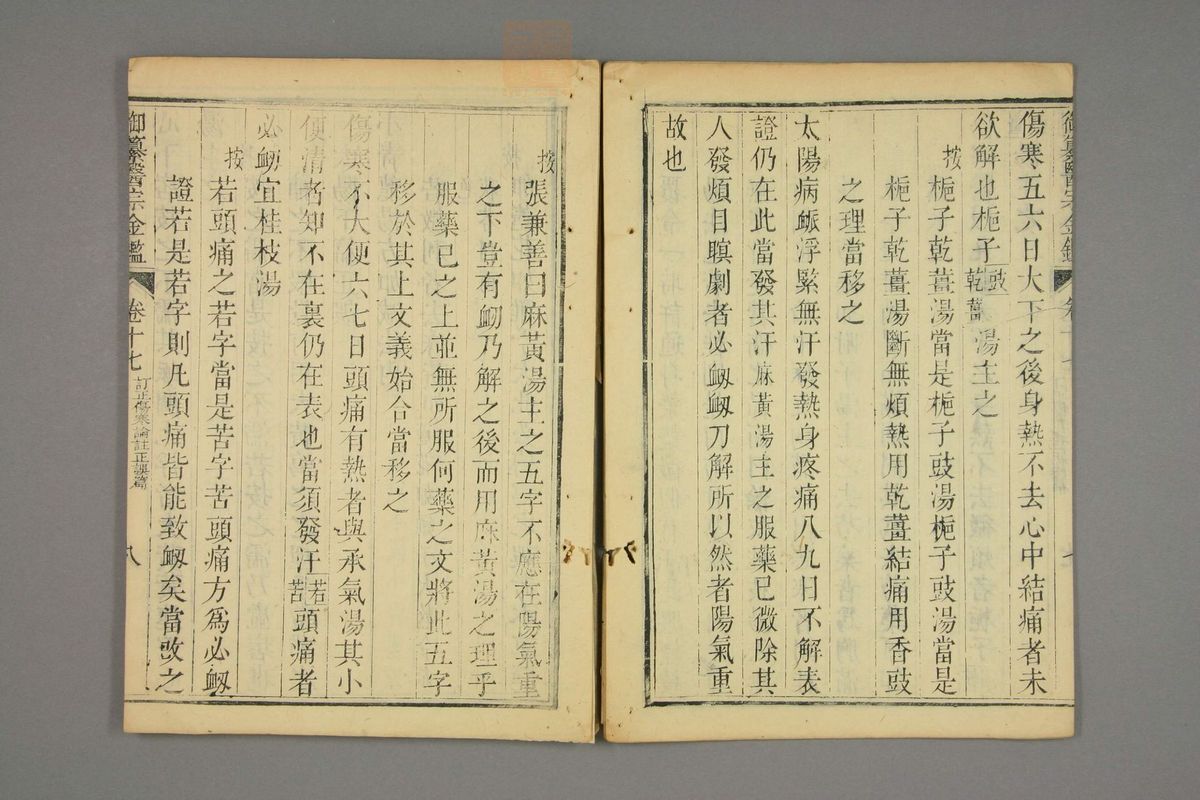 傷寒五六日大下之後身熱不去心中結痛者未
欲解也梔子豉乾薑湯主之
按梔子乾薑湯當是梔子豉湯梔子豉湯當是
梔子乾薑湯斷無煩熱用乾薑結痛用香豉
之理當移之
太陽病脈浮緊無汗發熱身疼痛八九日不解表
證仍在此當發其汗麻黃湯主之服藥已微除其
人發煩目瞑劇者必衂衂乃解所以然者陽氣重
故也
按張兼善曰麻黃湯主之五字不應在陽氣重
之下豈有衂乃解之後而用麻黃湯之理乎
服藥已之上並無所服何藥之文將此五字
移於其上文義始合當移之
傷寒不大便六七日頭痛有熱者與承氣湯其小
便清者知不在裏仍在表也當須發汗若苦頭痛者
必衂宜桂枝湯
按若頭痛之若字當是苦字苦頭痛方爲必衂
證若是若字則凡頭痛皆能致衂矣當改之
御纂醫宗金鑑 卷十七 訂正傷寒論註正誤篇 八